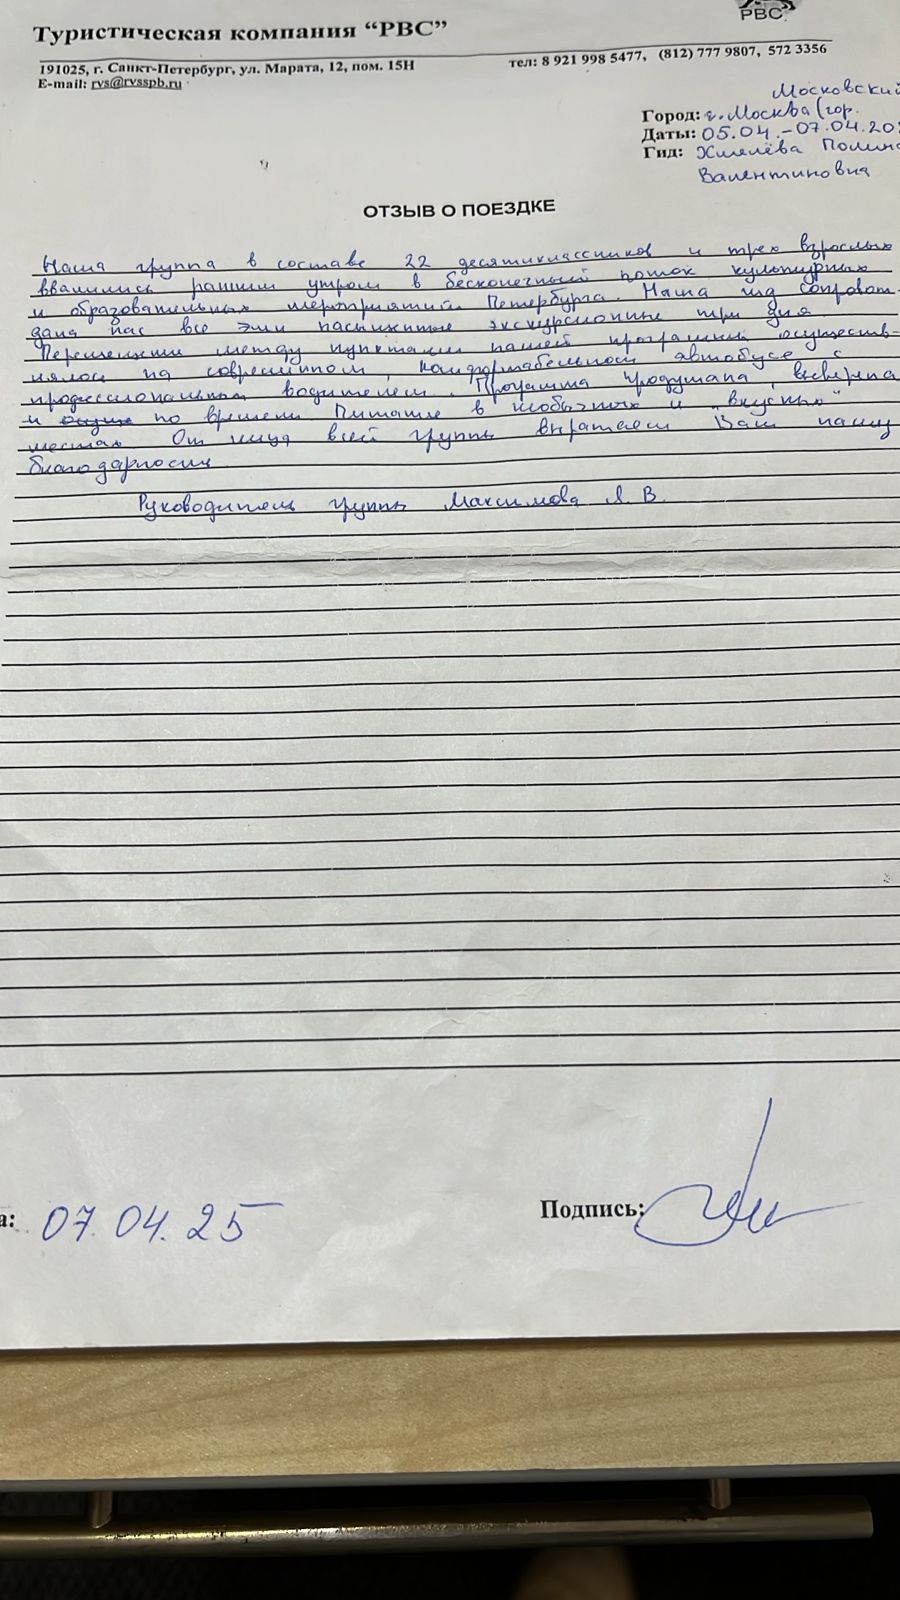 РВС
Туристическая компания “РВС”
191025, г. Санкт-Петербург, ул. Марата, 12, пом. 15Н
тел: 8 921 998 5477, (812) 777 9807, 572 3356
E-mail: rvs@rvsspb.ru
Московский
Город: г. Москва (гор.
Даты: 05.04.-07.04.20
Гид: Хмелёва Полина
Валентиновна
ОТЗЫВ О ПОЕЗДКЕ
Наша группа в составе 22 десятиклассников и трех взрослых
ввалились ранним утром в бесконечный поток культурных
и образовательных мероприятий Петербурга. Наша гид сопровож-
дала нас все эти насыщенные экскурсионные три дня
Перемещения между пунктами нашей программы осуществ-
лялось на современном, комфортабельном автобусе с
профессиональным водителем. Программа продумана, выверена
и по времени Питание в необычных и "вкусных"
местах От лица всей группы выражаем Вам нашу
благодарность
Руководитель группы Максимова Л. В.
а: 07.04.25
Подпись: